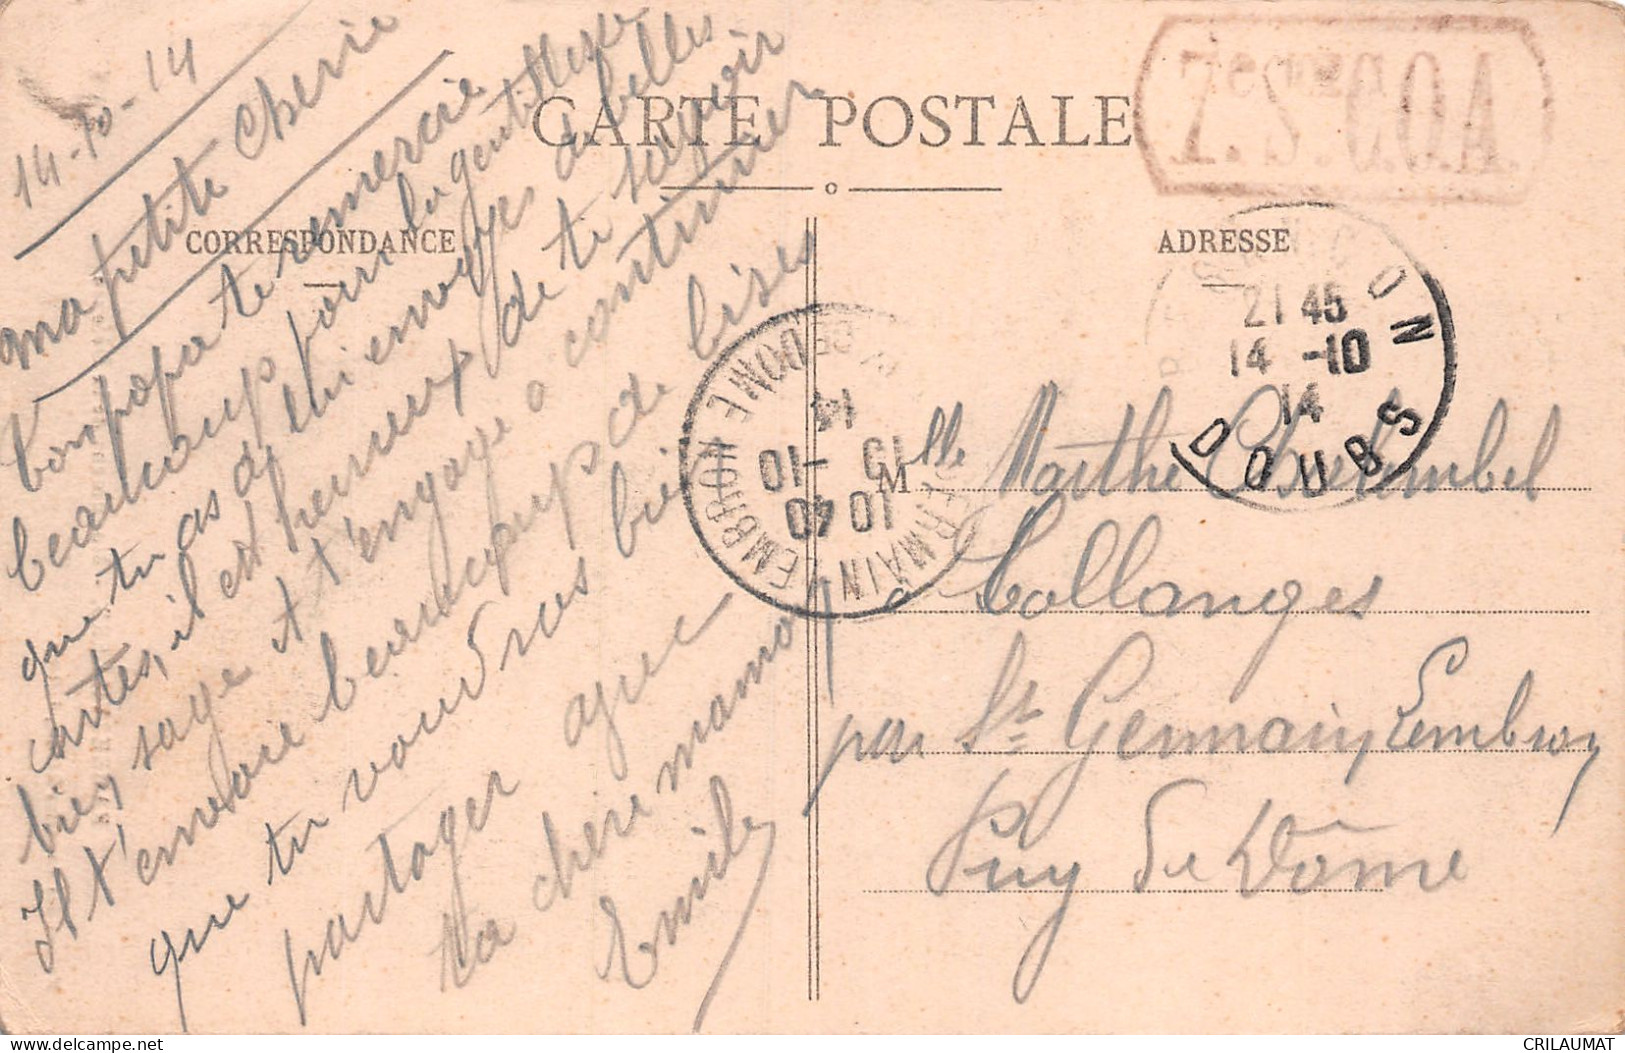 14-10-14
ma petite cherie
ton papa te remercie
beaucoup pour la gentillesse
que tu as de lui envoyer de belles
cartes, il est heureux de te savoir
bien sage et t'engage a continuer
Il t'envoie beaucoup de bises
que tu voudras bien
partager avec
ta chère maman
Emile
CARTE POSTALE
CORRESPONDANCE
ADRESSE
7.e S.on C.O.A.
21 45
14 -10
14
DOUBS
ST GERMAIN LEMBRON
PUY DE DOME
10 40
15 -10
14
Mlle Marthe
a Collanges
par St Germain, Lembron
Puy De Dôme
CRILAUMAT
delcampe.net